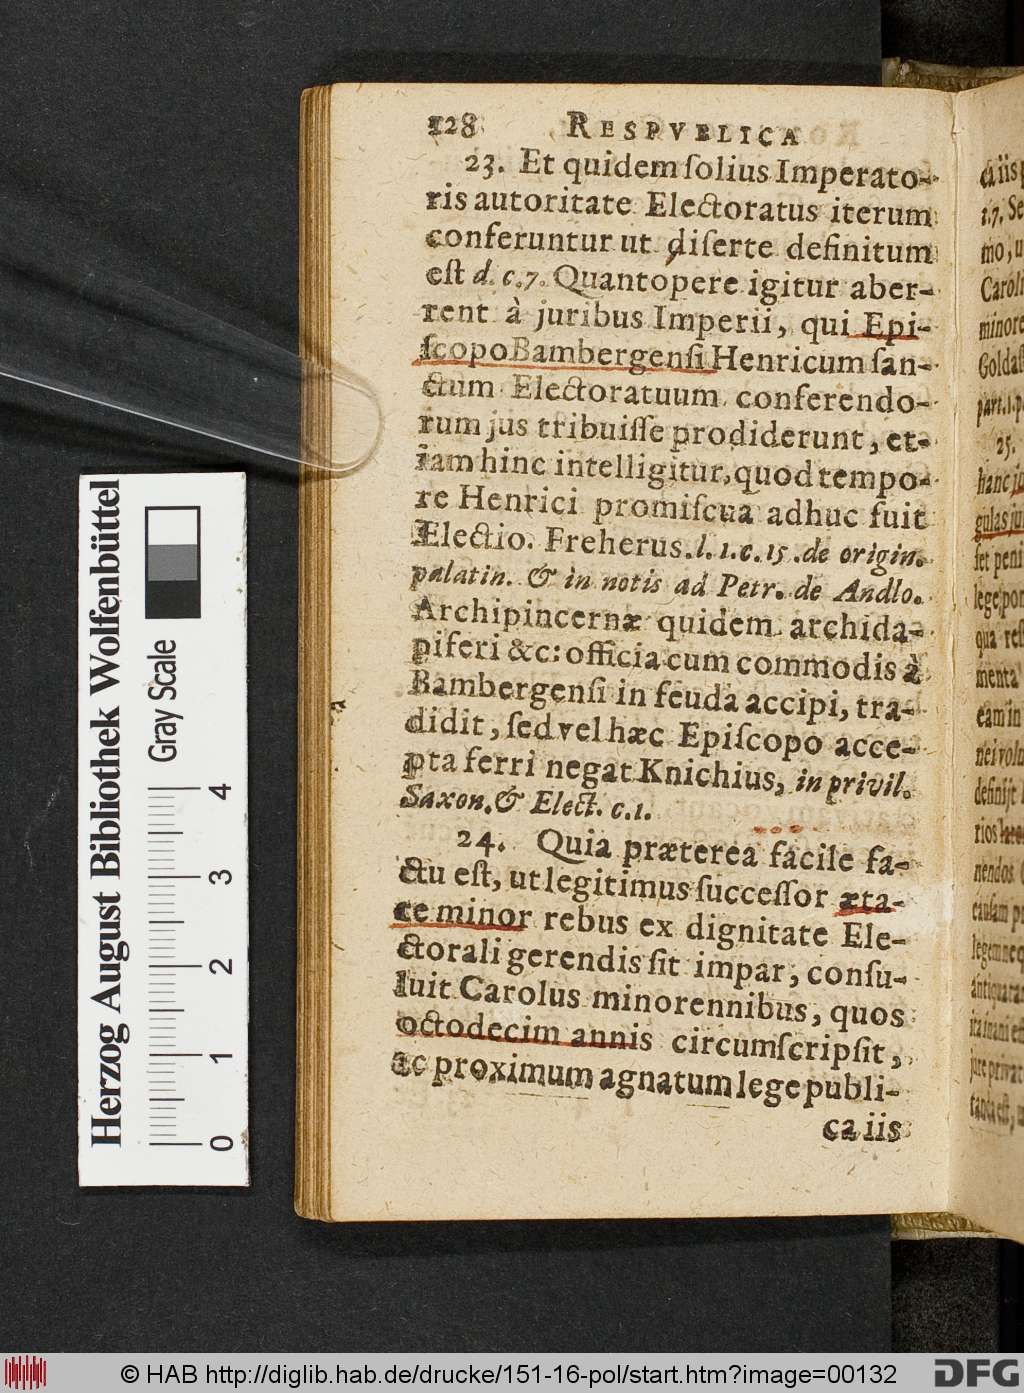 128 RESPVBLICA
23. Et quidem ſolius Imperato-
ris autoritate Electoratus iterum
conferuntur ut diſerte definitum
eſt d. c. 7. Quantopere igitur aber-
rent à juribus Imperii, qui Epi-
ſcopo Bambergenſi Henricum ſan-
ctum Electoratuum conferendo-
rum jus tribuiſſe prodiderunt, et-
iam hinc intelligitur, quod tempo-
re Henrici promiſcua adhuc fuit
Electio. Freherus. l. 1. c. 15. de origin.
palatin. & in notis ad Petr. de Andlo.
Archipincernæ quidem archida-
piferi &c: officia cum commodis à
Bambergenſi in feuda accipi, tra-
didit, ſed vel hæc Epiſcopo acce-
pta ferri negat Knichius, in privil.
Saxon. & Elect. c. 1.
24. Quia præterea facile fa-
ctu eſt, ut legitimus ſucceſſor æta-
te minor rebus ex dignitate Ele-
ctorali gerendis ſit impar, conſu-
luit Carolus minorennibus, quos
octodecim annis circumſcripſit,
ac proximum agnatum lege publi-
ca iis
ca iis
1.7. Se
mo, u
Carol
minore
Goldaſ
part. 1. p
25.
hanc ju
gulas ju
ſet peni
lege por
qua reſ
menta
eam in
nei volu
definijt
rios
nendos.
cauſam p
legem neq
antiquata
jure privat
Herzog August Bibliothek Wolfenbüttel
Gray Scale
0 1 2 3 4
© HAB http://diglib.hab.de/drucke/151-16-pol/start.htm?image=00132
DFG